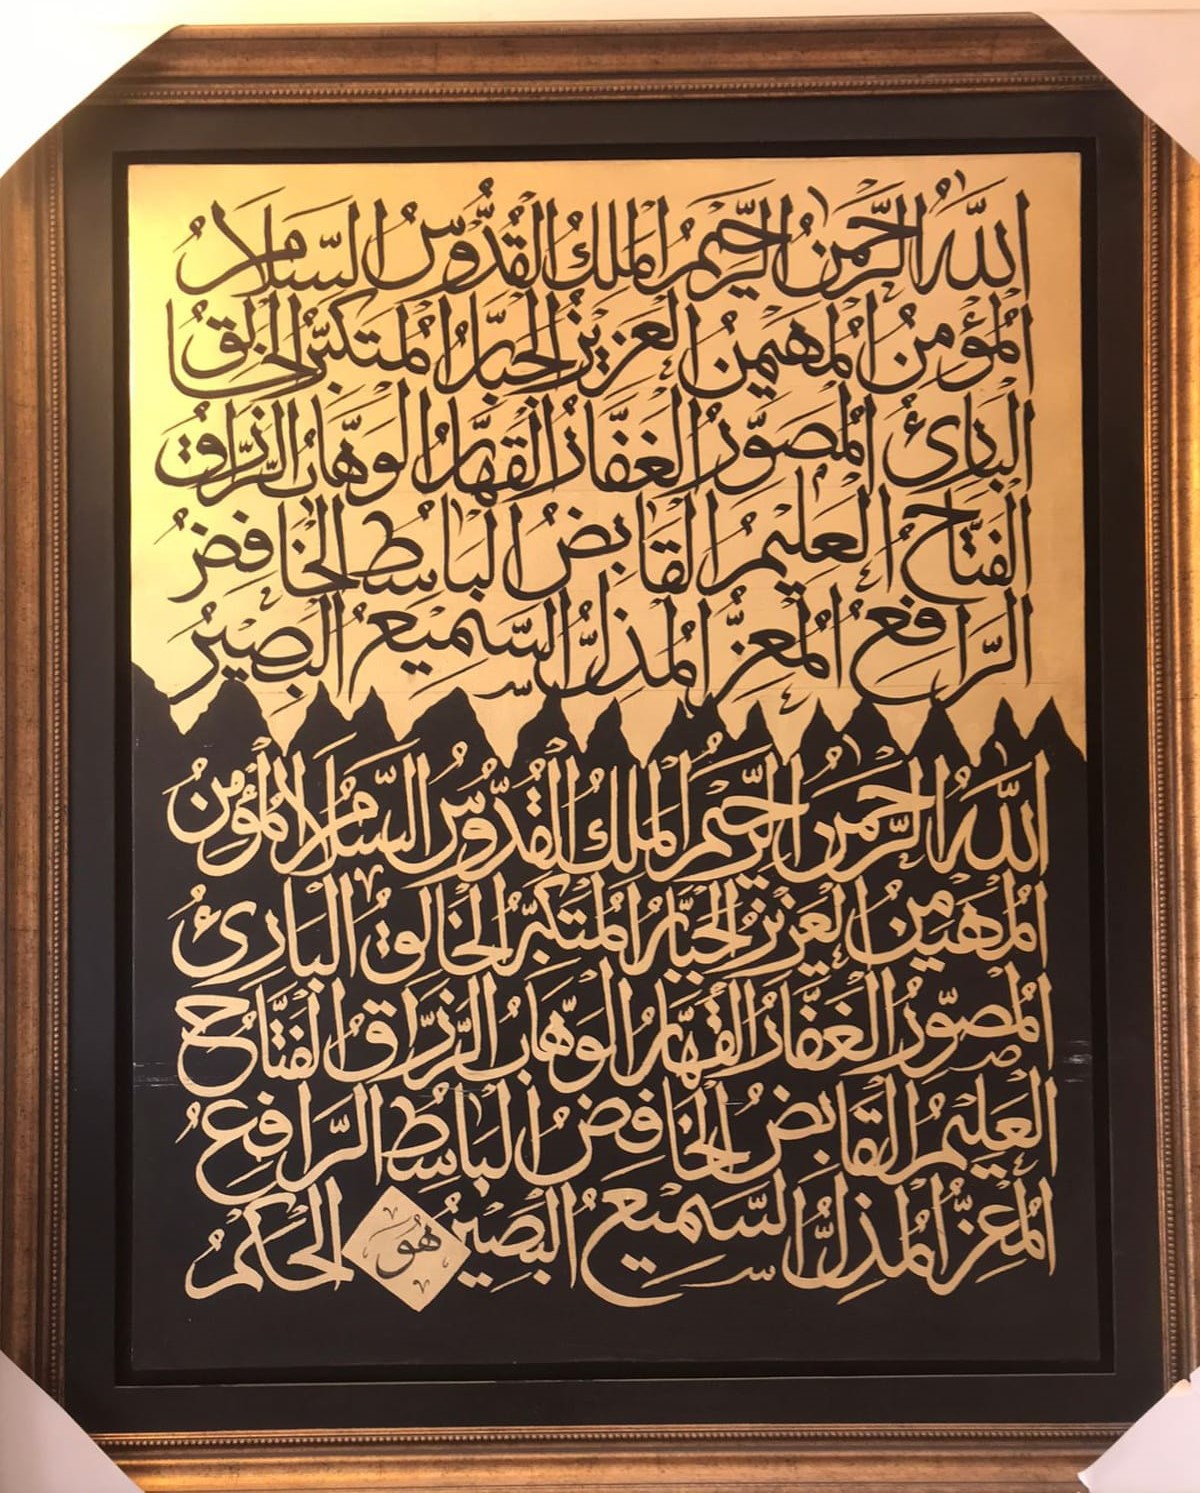 اللَّهُ الرَّحْمٰنُ الرَّحِيمُ المَلِكُ القُدُّوسُ السَّلَامُ
المُؤْمِنُ المُهَيْمِنُ العَزِيزُ الجَبَّارُ المُتَكَبِّرُ الخَالِقُ
البَارِئُ المُصَوِّرُ الغَفَّارُ القَهَّارُ الوَهَّابُ الرَّزَّاقُ
الفَتَّاحُ العَلِيمُ القَابِضُ البَاسِطُ الخَافِضُ
الرَّافِعُ المُعِزُّ المُذِلُّ السَّمِيعُ البَصِيرُ
اللَّهُ الرَّحْمٰنُ الرَّحِيمُ المَلِكُ القُدُّوسُ السَّلَامُ المُؤْمِنُ
المُهَيْمِنُ العَزِيزُ الجَبَّارُ المُتَكَبِّرُ الخَالِقُ البَارِئُ
المُصَوِّرُ الغَفَّارُ القَهَّارُ الوَهَّابُ الرَّزَّاقُ الفَتَّاحُ
العَلِيمُ القَابِضُ الخَافِضُ البَاسِطُ الرَّافِعُ
المُعِزُّ المُذِلُّ السَّمِيعُ البَصِيرُ هُوَ الحَكَمُ